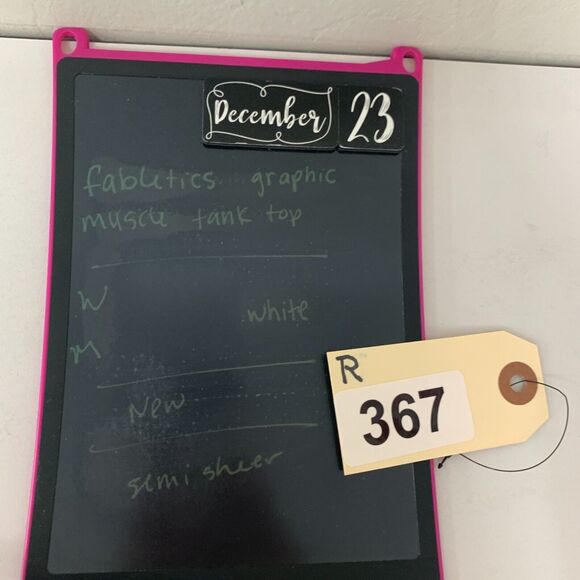 December 23
fabletics graphic
muscle tank top
W white
M
New
semi sheer
R
367